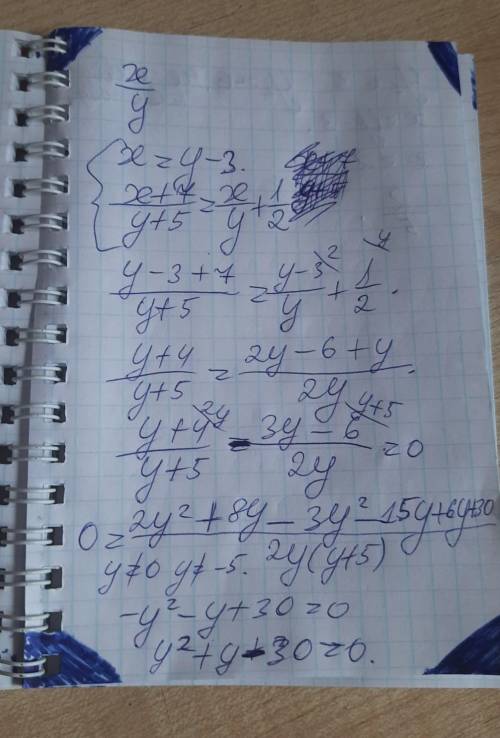 x/y
{ x = y - 3.
x+7/y+5 = x/y + 1/2
y-3+7/y+5 = y-3/y \2 + 1/2 \y .
y+4/y+5 = 2y-6+y/2y .
y+4/y+5 \2y - 3y-6/2y \y+5 = 0
0 = 2y²+8y-3y²-15y+6y+30/2y(y+5)
y≠0 y≠-5.
-y²-y+30=0
y²+y-30=0.